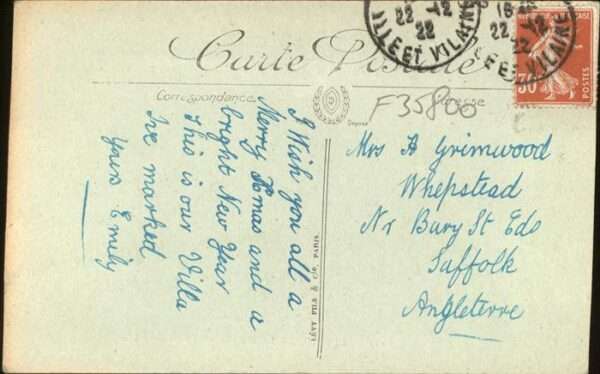 Carte Postale
Correspondance
Adresse
F35800
22 -12
22
ILLE ET VILAINE
22 -12
22
ILLE ET VILAINE
30
POSTES
I Wish you all a
Merry Xmas and a
bright New Year
this is our Villa
Ive marked
yours Emily
LÉVY FILS & Cie, PARIS.
Mrs H Grimwood
Whepstead
Nr Bury St Eds
Suffolk
Angleterre